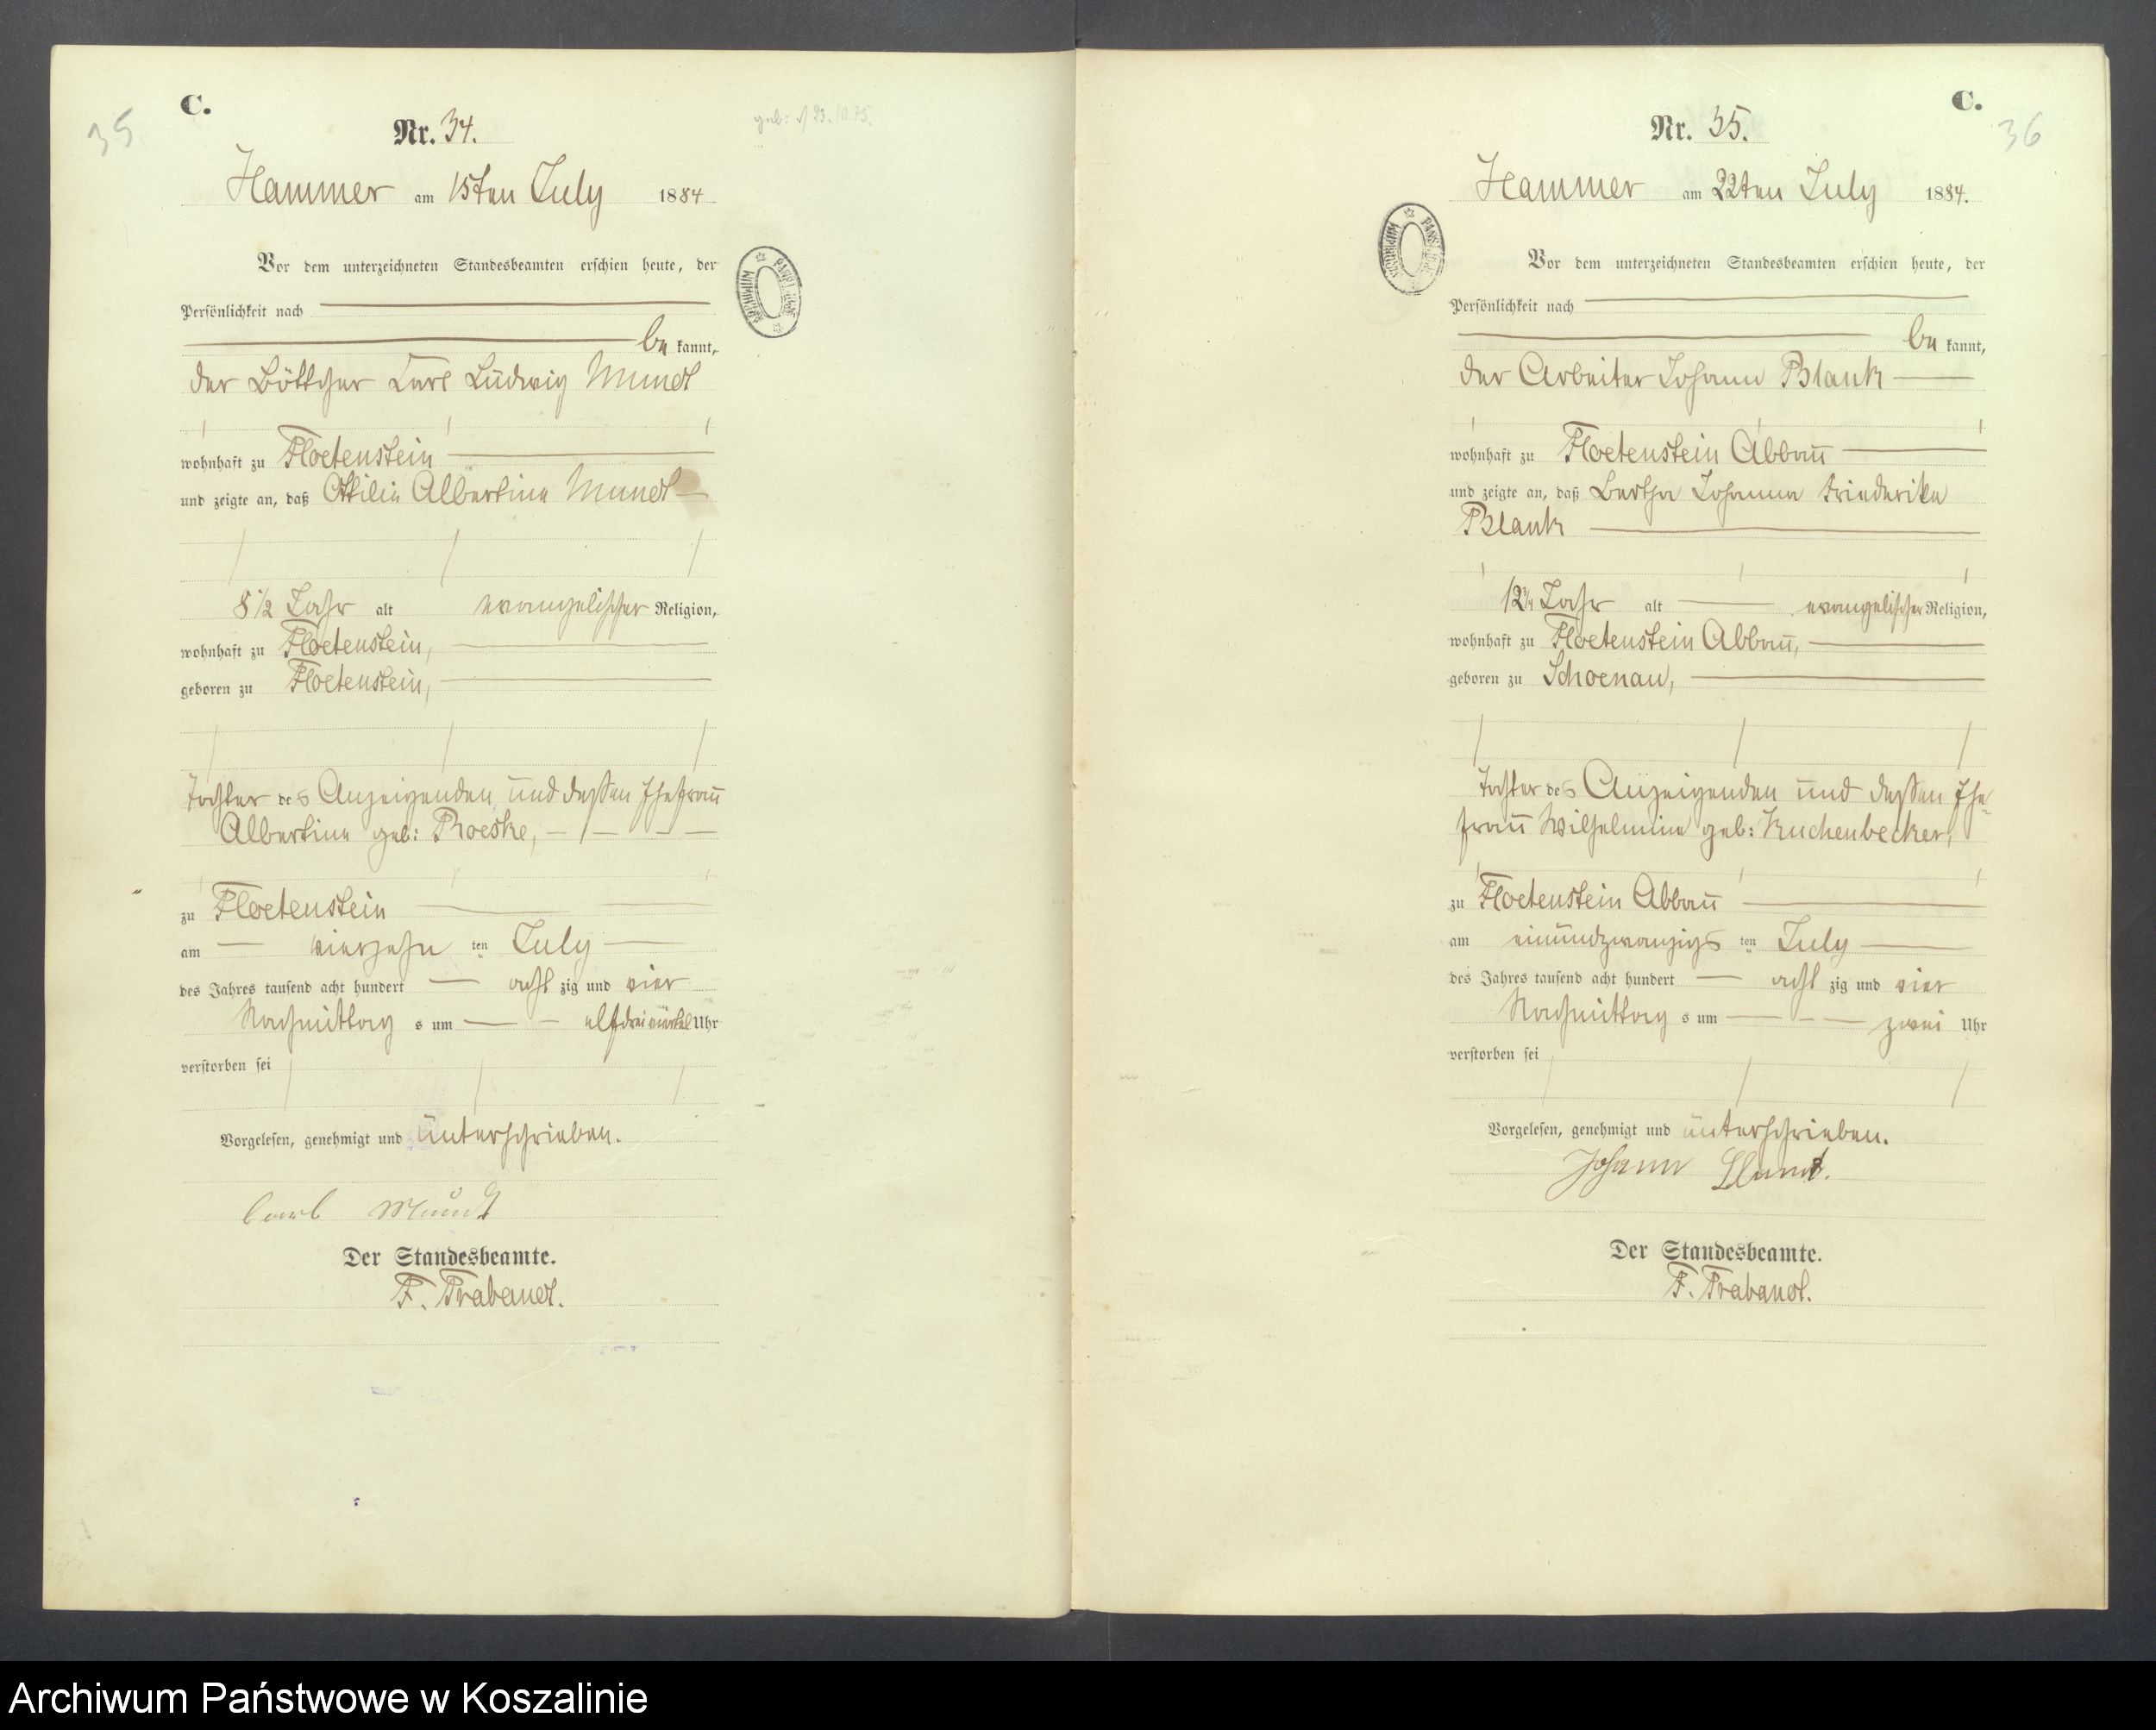 35
C.
Nr. 34.
geb: d 23.10.75.
Hammer am 15ten July 1884
Vor dem unterzeichneten Standesbeamten erschien heute, der
Persönlichkeit nach
be kannt,
der Böttcher Carl Ludwig Mundt
wohnhaft zu Floetenstein
und zeigte an, daß Ottilie Albertine Mundt
8 1/2 Jahr alt evangelischer Religion,
wohnhaft zu Floetenstein,
geboren zu Floetenstein,
Tochter des Anzeigenden und dessen Ehefrau
Albertine geb: Roeske,
zu Floetenstein
am vierzehn ten July
des Jahres tausend acht hundert acht zig und vier
Nachmittag s um elf dreiviertel Uhr
verstorben sei
Vorgelesen, genehmigt und unterschrieben.
Carl Mundt
Der Standesbeamte.
F. Trabandt.
C.
36
Nr. 35.
Hammer am 22ten July 1884.
Vor dem unterzeichneten Standesbeamten erschien heute, der
Persönlichkeit nach
be kannt,
der Arbeiter Johann Blank
wohnhaft zu Floetenstein Abbau
und zeigte an, daß Bertha Johanna Friederike
Blank
12 3/4 Jahr alt evangelischer Religion,
wohnhaft zu Floetenstein Abbau,
geboren zu Schoenau,
Tochter des Anzeigenden und dessen Ehe-
frau Wilhelmine geb: Kuchenbecker,
zu Floetenstein Abbau
am einundzwanzigs ten July
des Jahres tausend acht hundert acht zig und vier
Nachmittag s um zwei Uhr
verstorben sei
Vorgelesen, genehmigt und unterschrieben.
Johann Blank.
Der Standesbeamte.
F. Trabandt.
Archiwum Państwowe w Koszalinie